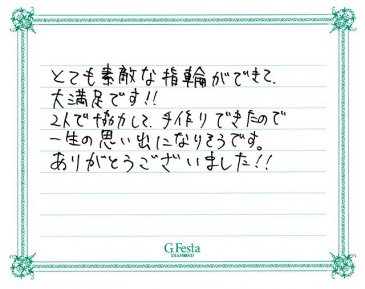 とても素敵な指輪ができて、
大満足です!!
2人で協力して、手作りできたので
一生の思い出になりそうです。
ありがとうございました!!
G.Festa
DIAMOND